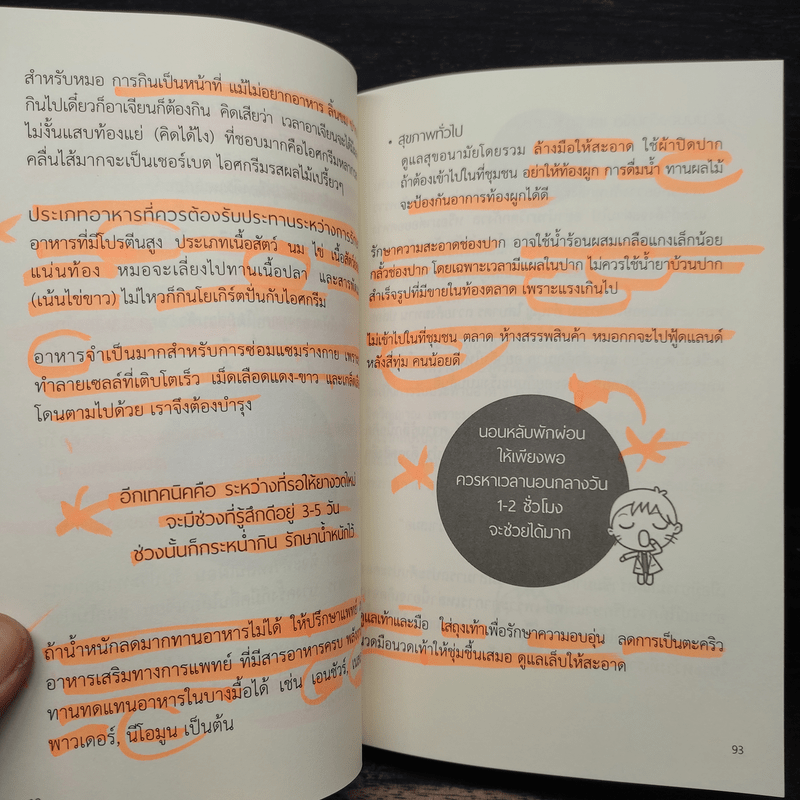 สำหรับหมอ การกินเป็นหน้าที่ แม้ไม่อยากอาหาร ลิ้นขม
กินไปเดี๋ยวก็อาเจียนก็ต้องกิน คิดเสียว่า เวลาอาเจียนจะได้มี
ไม่งั้นแสบท้องแย่ (คิดได้ไง) ที่ชอบมากคือไอศกรีมหลาก
คลื่นไส้มากจะเป็นเชอร์เบต ไอศกรีมรสผลไม้เปรี้ยวๆ
ประเภทอาหารที่ควรต้องรับประทานระหว่างการรัก
อาหารที่มีโปรตีนสูง ประเภทเนื้อสัตว์ นม ไข่ เนื้อสัตว์
แน่นท้อง หมอจะเลี่ยงไปทานเนื้อปลา และสาร
(เน้นไข่ขาว) ไม่ไหวก็กินโยเกิร์ตปั่นกับไอศกรีม
อาหารจำเป็นมากสำหรับการซ่อมแซมร่างกาย เพราะ
ทำลายเซลล์ที่เติบโตเร็ว เม็ดเลือดแดง-ขาว และเกล็ด
โดนตามไปด้วย เราจึงต้องบำรุง
อีกเทคนิคคือ ระหว่างที่รอให้ยางวดใหม่
จะมีช่วงที่รู้สึกดีอยู่ 3-5 วัน
ช่วงนั้นก็กระหน่ำกิน รักษาน้ำหนักไว้
ถ้าน้ำหนักลดมากทานอาหารไม่ได้ ให้ปรึกษาแพทย์
อาหารเสริมทางการแพทย์ ที่มีสารอาหารครบ
ทานทดแทนอาหารในบางมื้อได้ เช่น เอนชัวร์,
พาวเดอร์, นีโอมูน เป็นต้น
• สุขภาพทั่วไป
ดูแลสุขอนามัยโดยรวม ล้างมือให้สะอาด ใช้ผ้าปิดปาก
ถ้าต้องเข้าไปในที่ชุมชน อย่าให้ท้องผูก การดื่มน้ำ ทานผลไม้
จะป้องกันอาการท้องผูกได้ดี
รักษาความสะอาดช่องปาก อาจใช้น้ำร้อนผสมเกลือแกงเล็กน้อย
กลั้วช่องปาก โดยเฉพาะเวลามีแผลในปาก ไม่ควรใช้น้ำยาบ้วนปาก
สำเร็จรูปที่มีขายในท้องตลาด เพราะแรงเกินไป
ไม่เข้าไปในที่ชุมชน ตลาด ห้างสรรพสินค้า หมอกกจะไปฟู้ดแลนด์
หลังสี่ทุ่ม คนน้อยดี
นอนหลับพักผ่อน
ให้เพียงพอ
ควรหาเวลานอนกลางวัน
1-2 ชั่วโมง
จะช่วยได้มาก
ดูแลเท้าและมือ ใส่ถุงเท้าเพื่อรักษาความอบอุ่น ลดการเป็นตะคริว
นวดมือนวดเท้าให้ชุ่มชื้นเสมอ ดูแลเล็บให้สะอาด
93